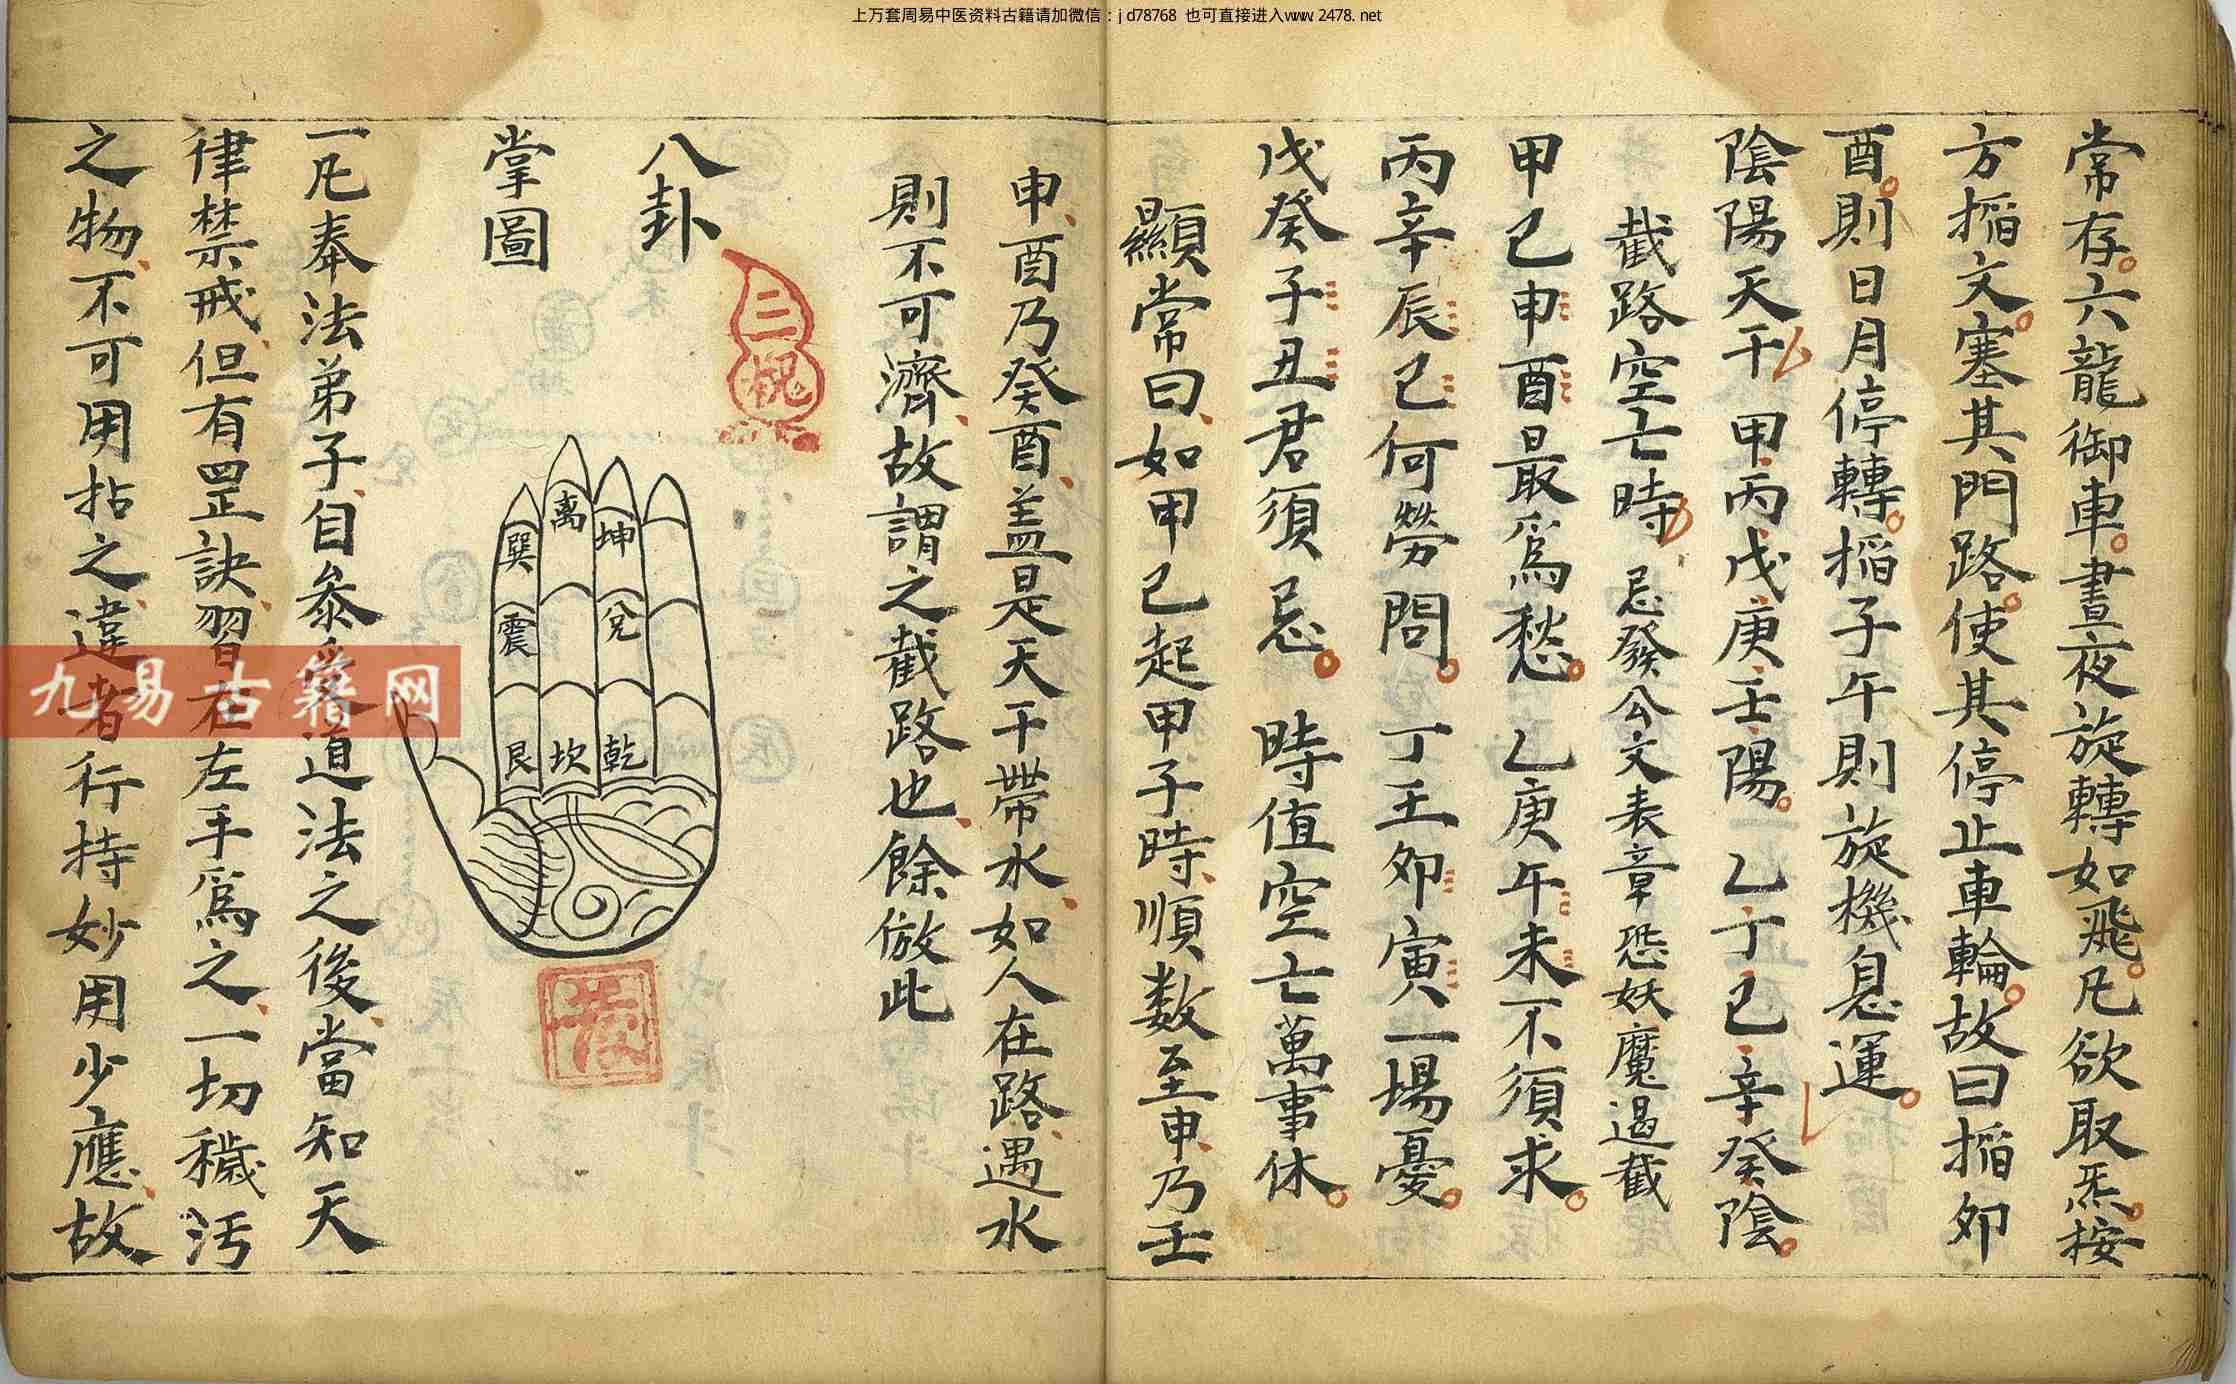 上万套周易中医资料古籍请加微信：jd78768 也可直接进入www.2478.net
常存六龍御車晝夜旋轉如飛凡欲取炁按
方搯文塞其門路使其停止車輪故曰搯夘
酉則日月停轉搯子午則旋機息運
陰陽天干 甲丙戊庚壬陽 乙丁己辛癸陰
截路空亡時 忌發公文表章恐妖魔遏截
甲己申酉最爲愁 乙庚午未不須求
丙辛辰巳何勞問 丁壬夘寅一場憂
戊癸子丑君須忌 時值空亡萬事休
顯常曰如甲己起甲子時順数至申乃壬
申酉乃癸酉盖是天干帶水如人在路遇水
則不可濟故謂之截路也餘倣此
八卦
掌圖
三槐
離
坤
巽
兌
震
乾
坎
艮
一凡奉法弟子自叅受道法之後當知天
律禁戒但有罡訣習在左手爲之一切穢污
之物不可用拈之違者行持妙用少應故
九易古籍网